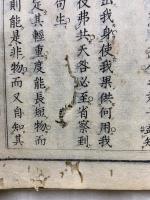 出我身使我果供何用我
役弗共天各必至省察到
句生
定其輕重度能長短物而
則能是非物而又自知其